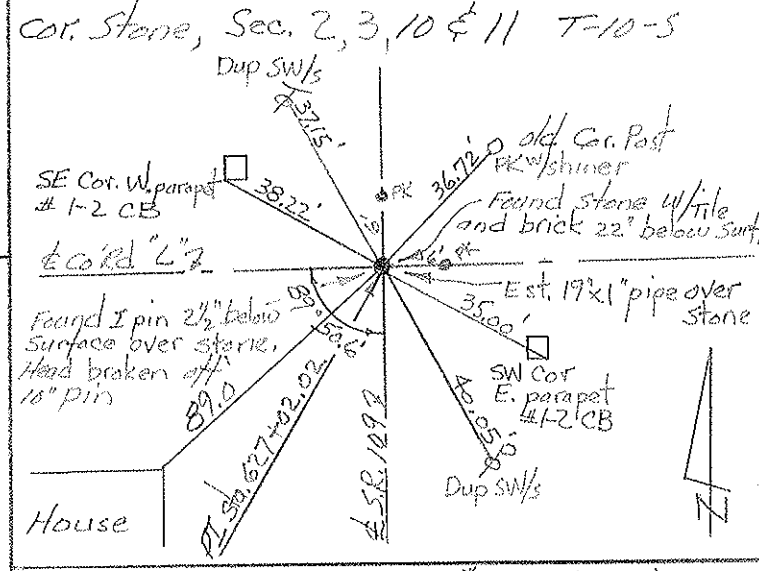 Cor. Stone, Sec. 2, 3, 10 & 11 T-10-S
Dup SW/s
37.15'
old Cor. Post
PK W/shiner
36.72'
SE Cor. W. parapet
# 1-2 CB
38.22'
PK
Found Stone w/Tile
and brick 22" below Surf.
℄ Co Rd "L"
6'
PK
Est. 19"x1" pipe over
Stone
Found I pin 2½" below
Surface over stone.
Head broken off
10" pin
89° 50.6'
35.00'
SW Cor
E. parapet
#1-2 CB
89.0
PI Sta. 627+02.02
℄ S.R. 109
40.05'
Dup SW/s
House
N